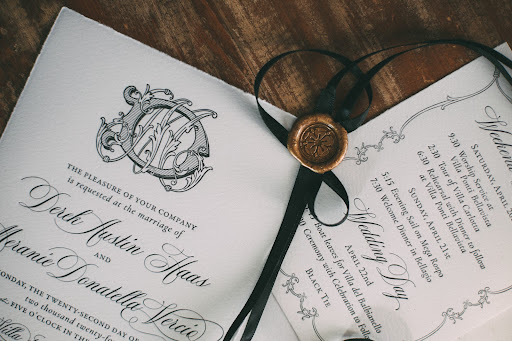 THE PLEASURE OF YOUR COMPANY
is requested at the marriage of
Derek Austin Haas
AND
Meranie Donatella Vercio
SUNDAY, THE TWENTY-SECOND DAY OF
two thousand twenty-fo
FIVE O'CLOCK IN THE
Villa
Weekend
SATURDAY, APRIL
9:30 Worship Service at
Villa Pond Bellavista
2:30 Tour of Villa Carlotta
9:30 Rehearsal with
Villa Pond Bellavista
SUNDAY, APRIL 21ST
5:15 Evening Sail on Mega Ropa
7:30 Welcome Dinner in Bellagio
Wedding Day
APRIL 22ND
Boat leaves for Villa del Balbianello
Ceremony with Celebration to Foll
BLACK TIE